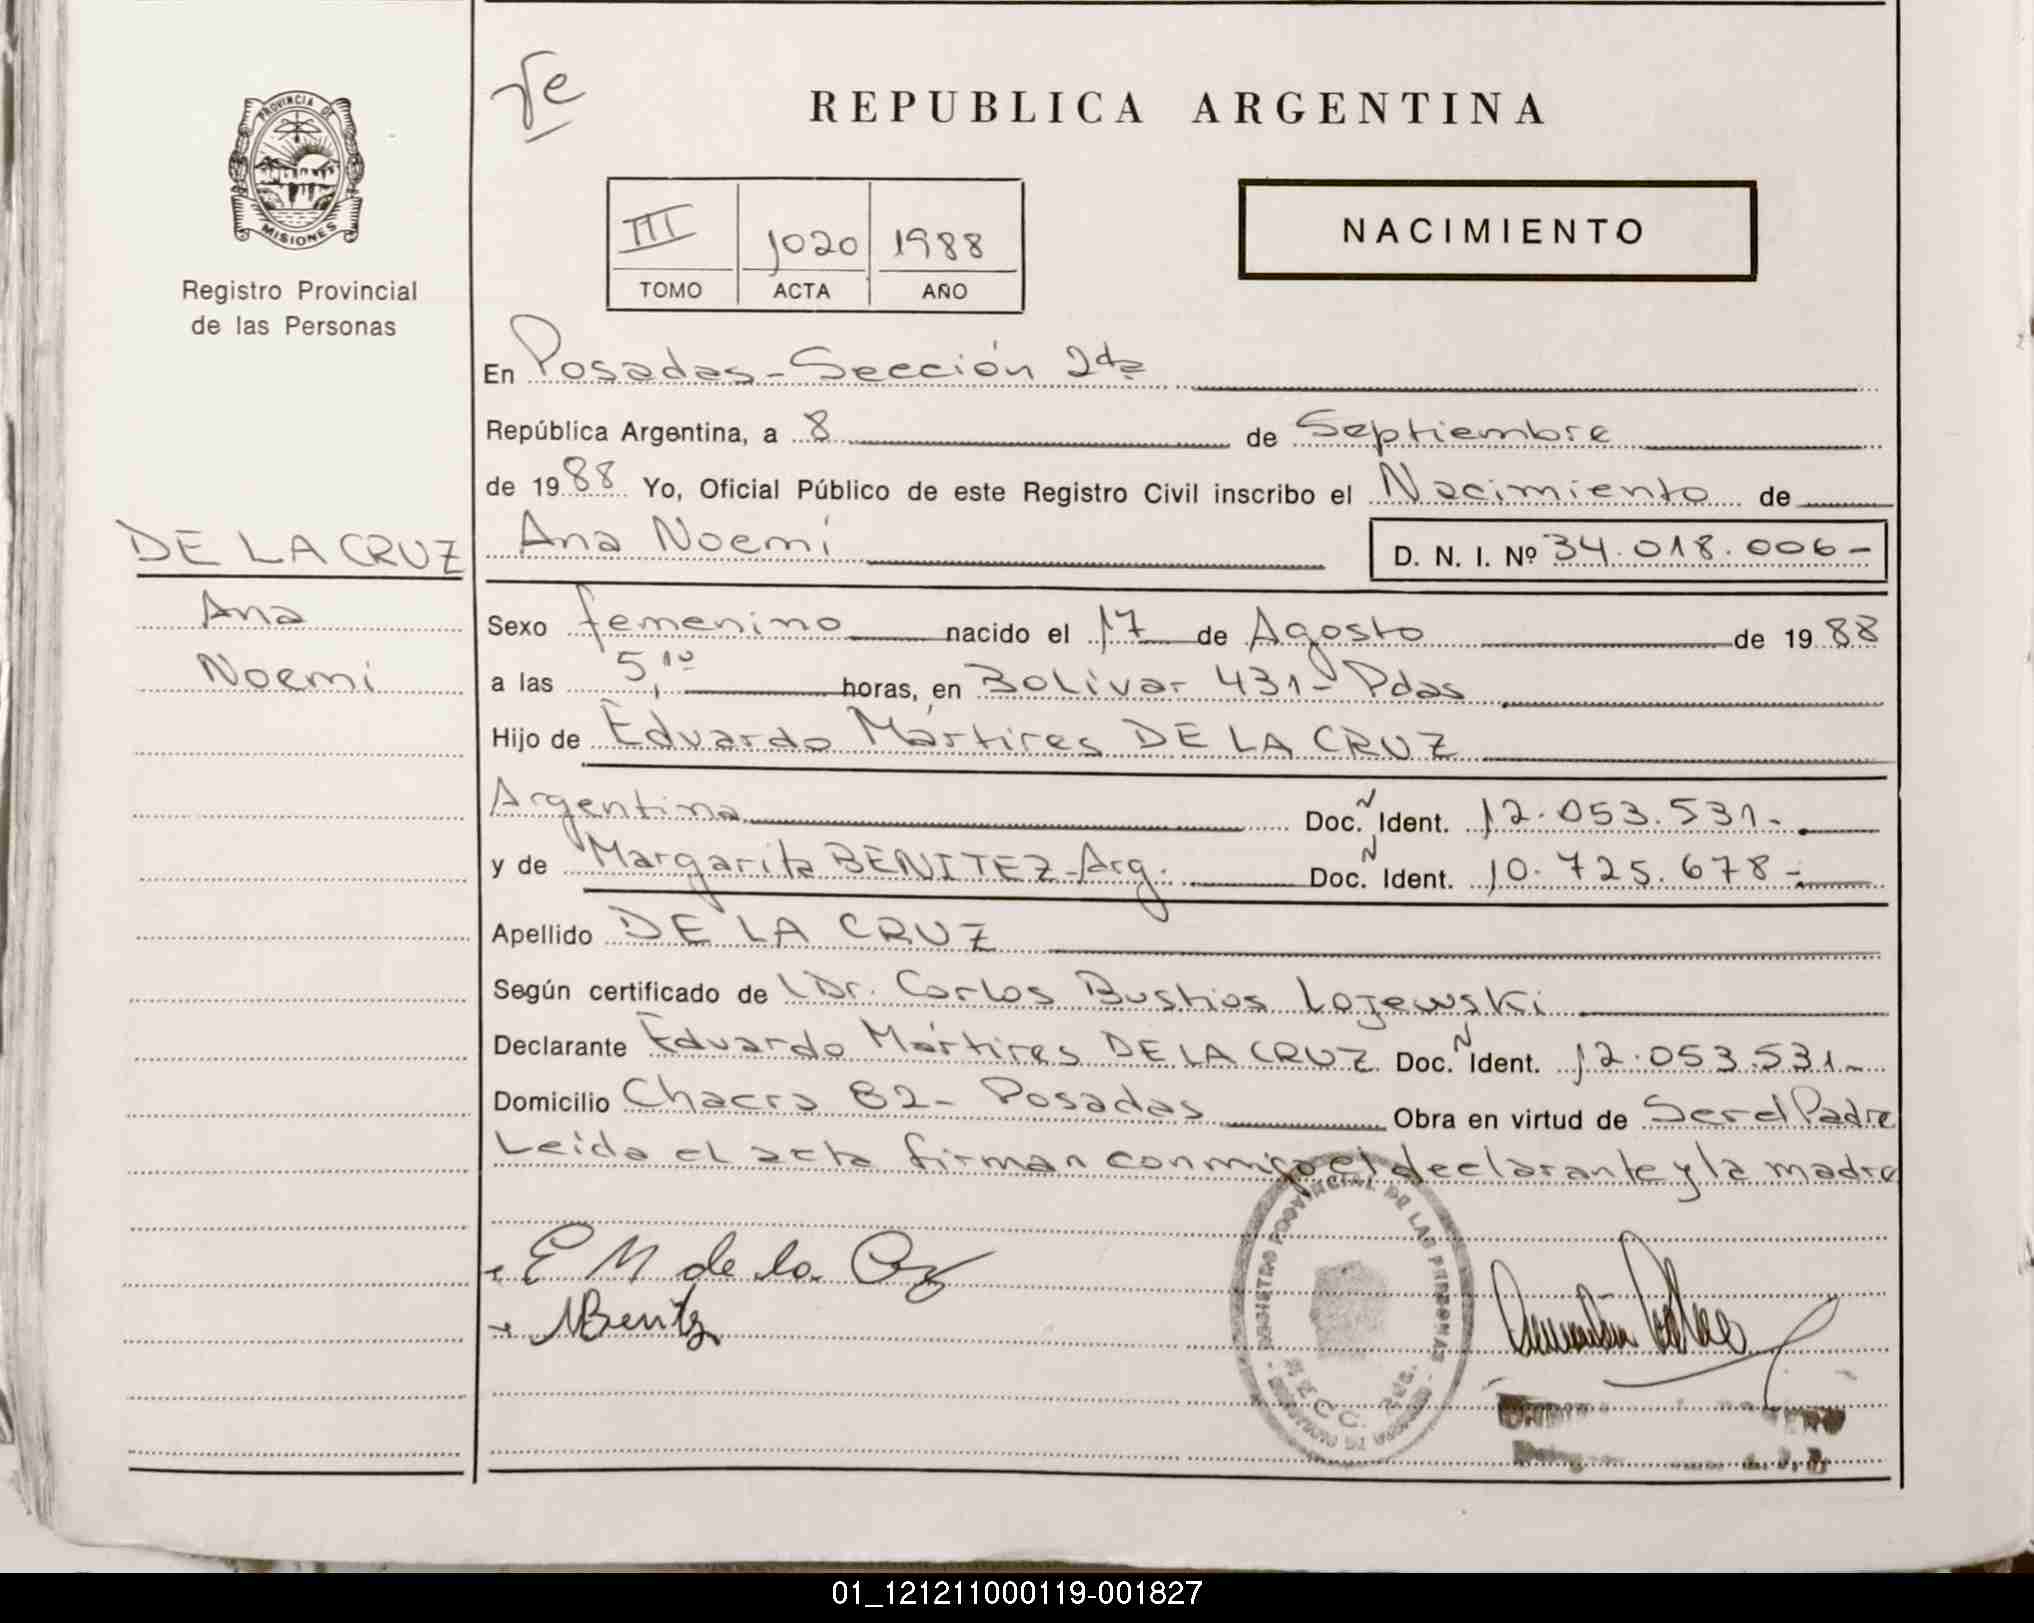 PROVINCIA DE
MISIONES
Registro Provincial
de las Personas
REPUBLICA ARGENTINA
III 1020 1988
TOMO ACTA AÑO
NACIMIENTO
En Posadas - Sección 2da
República Argentina, a 8 de Septiembre
de 1988 Yo, Oficial Público de este Registro Civil inscribo el Nacimiento de
DE LA CRUZ
Ana Noemí D. N. I. Nº 34.018.006-
Ana
Noemi
Sexo femenino nacido el 17 de Agosto de 1988
a las 5,10 horas, en Bolivar 431 - Pdas
Hijo de Eduardo Mártires DE LA CRUZ
Argentina Doc. N Ident. 12.053.531-
y de Margarita BENITEZ - Arg. Doc. N Ident. 10.725.678-
Apellido DE LA CRUZ
Según certificado de Dr. Carlos Bustios Lojewski
Declarante Eduardo Mártires DE LA CRUZ Doc. N Ident. 12.053.531-
Domicilio Chacra 82 - Posadas Obra en virtud de Ser el Padre
Leída el acta firman conmigo el declarante y la madre
E M de la Cruz
MBenitez
REGISTRO PROVINCIAL DE LAS PERSONAS
01_121211000119-001827